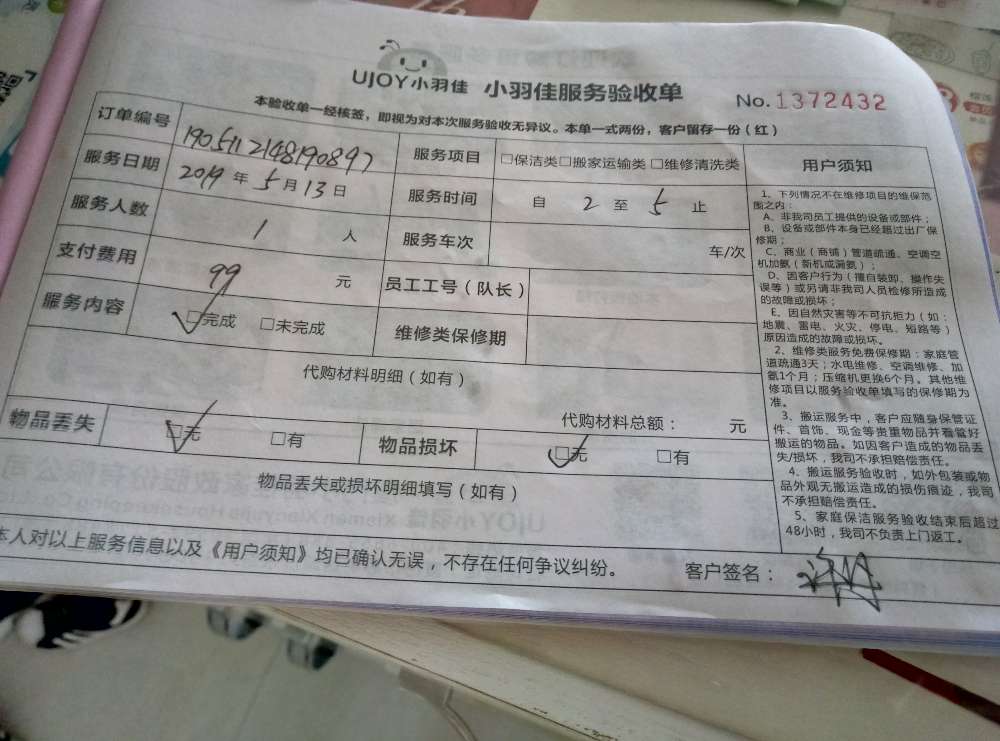 UJOY小羽佳 小羽佳服务验收单 No.1372432
本验收单一经核签，即视为对本次服务验收无异议。本单一式两份，客户留存一份（红）
订单编号 190511214819089 7 服务项目 □保洁类□搬家运输类 □维修清洗类
服务日期 2019 年 5 月 13 日 服务时间 自 2 至 5 止
服务人数 1 人 服务车次 车/次
支付费用 99 元 员工工号（队长）
服务内容 □完成 □未完成 维修类保修期
代购材料明细（如有）
代购材料总额： 元
物品丢失 □无 □有 物品损坏 □无 □有
物品丢失或损坏明细填写（如有）
本人对以上服务信息以及《用户须知》均已确认无误，不存在任何争议纠纷。 客户签名：
用户须知
1、下列情况不在维修项目的维保范
围之内：
A、非我司员工提供的设备或部件；
B、设备或部件本身已经超过出厂保
修期；
C、商业（商铺）管道疏通、空调空
机加氨（新机或漏氨）；
D、因客户行为（擅自装卸、操作失
误等）或另请非我司人员检修所造成
的故障或损坏；
E、因自然灾害等不可抗拒力（如：
地震、雷电、火灾、停电、短路等）
原因造成的故障或损坏。
2、维修类服务免费保修期：家庭管
道疏通3天；水电维修、空调维修、加
氨1个月；压缩机更换6个月。其他维
修项目以服务验收单填写的保修期为
准。
3、搬运服务中，客户应随身保管证
件、首饰、现金等贵重物品并看管好
搬运的物品。如因客户造成的物品丢
失/损坏，我司不承担赔偿责任。
4、搬运服务验收时，如外包装或物
品外观无搬运造成的损伤痕迹，我司
不承担赔偿责任。
5、家庭保洁服务验收结束后超过
48小时，我司不负责上门返工。